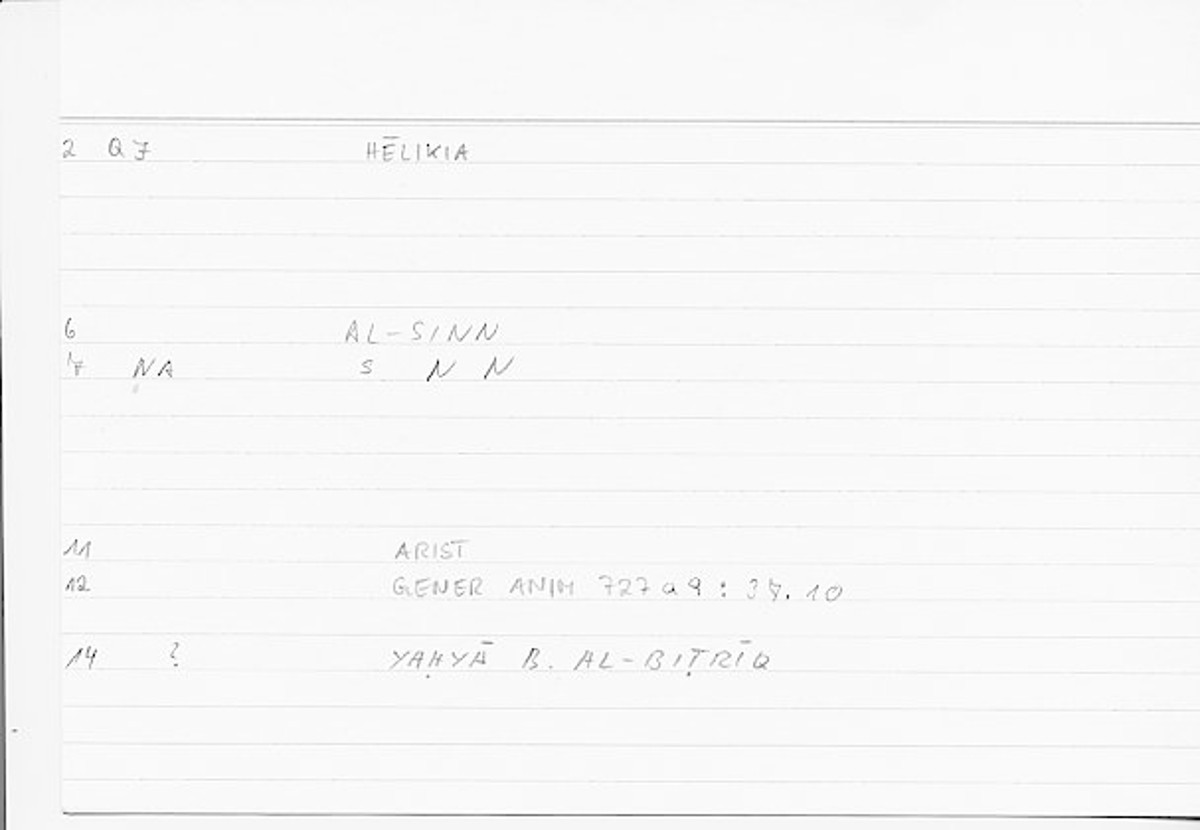 2 Q7 HĒLIKIA
6 AL-SINN
7 NA S N N
11 ARIST
12 GENER ANIM 727a9 : 37.10
14 ? YAḤYĀ B. AL-BIṬRĪQ